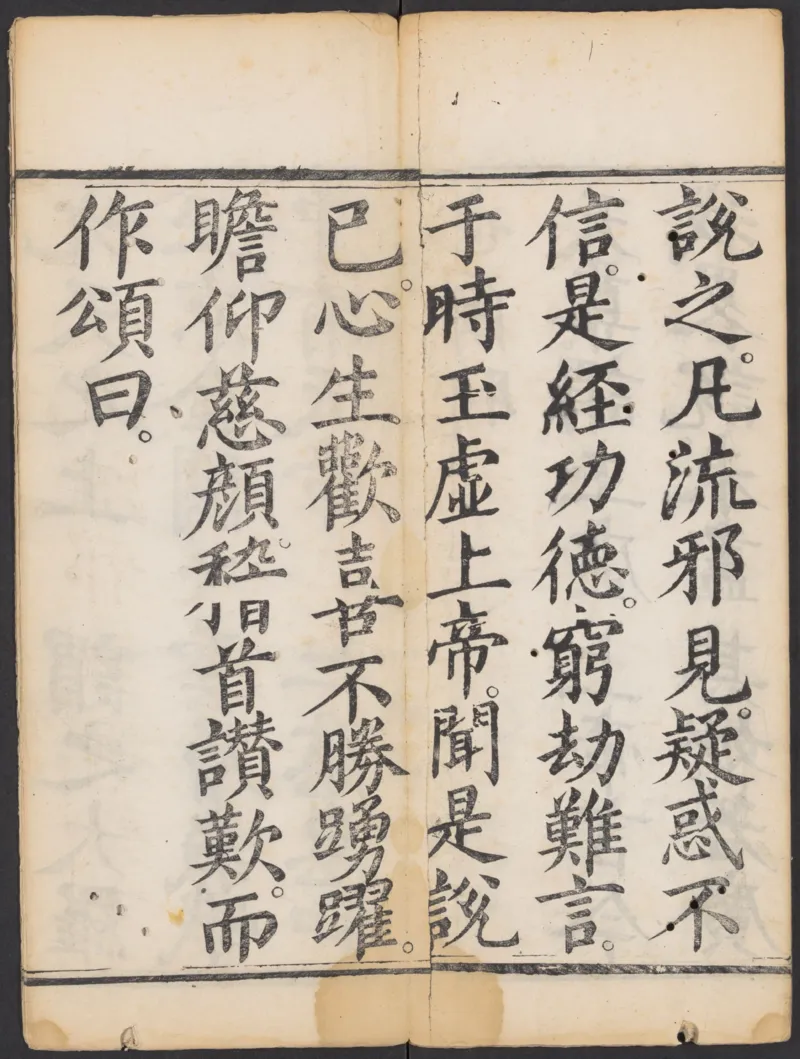 說之。凡流邪見。疑惑不
信。是経功徳。窮劫難言。
于時玉虚上帝。聞是說
已。心生歡喜不勝踴躍。
瞻仰慈顔。稽首讃歎。而
作頌曰。